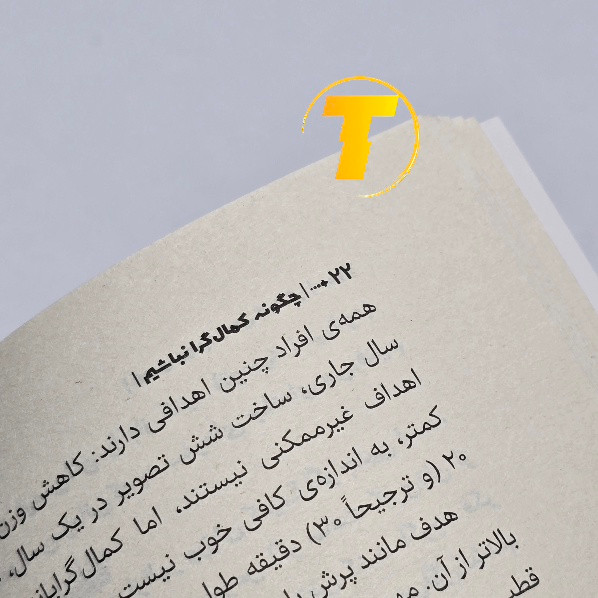 T
۲۲ •••• | چگونه کمال‌گرا نباشیم |
همه‌ی افراد چنین اهدافی دارند: کاهش وزن
سال جاری، ساخت شش تصویر در یک سال،
اهداف غیرممکنی نیستند، اما کمال‌گرایان
کمتر، به اندازه‌ی کافی خوب نیست
۲۰ (و ترجیحاً ۳۰) دقیقه طول
هدف مانند پرش
بالاتر از آن.